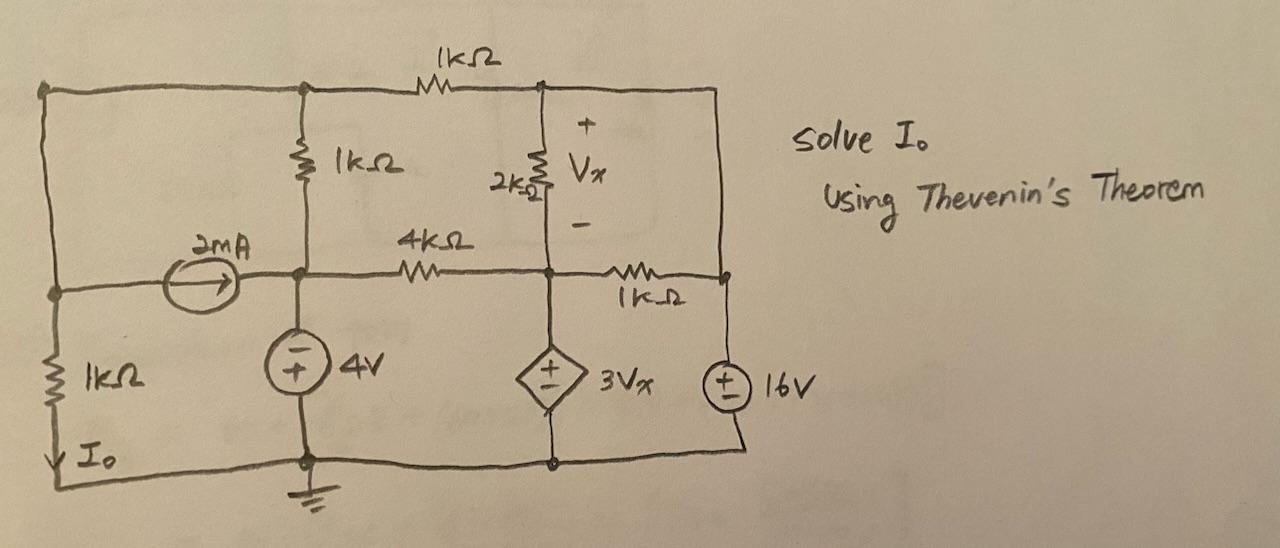 1kΩ
+
1kΩ
2kΩ
Vx
-
solve Io
Using Thevenin's Theorem
2mA
4kΩ
1kΩ
1kΩ
-
+
4V
+
-
3Vx
+
-
16V
Io